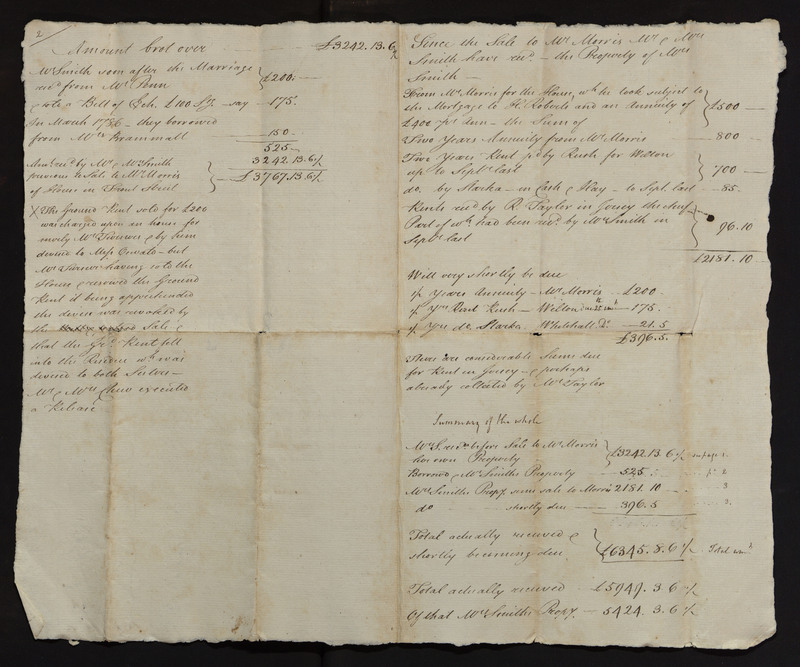 2
Amount brot over £3242.13.6½
Mr Smith soon after the Marriage
recd from Mr Penn £200.—
& sold a Bill of Exch. £100 say 175.
In March 1786 — they borrowed
from Mrs Brammall 150 —
525 —
Amot recd by Mr & Mrs Smith 3242.13.6½
previous to Sale to Mr Morris
of House in Street £3767.13.6½
X The Ground Rent sold for £200
was charged upon an house for
merly Mr Turners & by him
devised to Miss — but
Mr Turner having sold the
House & reserved the Ground
Rent it being apprehended
the devise was revoked by
the Sale &
that the Gd Rent fell
into the Residue wh was
devised to both Sisters —
Mr & Mrs have executed
a Release
Since the Sale to Mr Morris Mr & Mrs
Smith have recd — the Property of Mrs
Smith —
From Mr Morris for the House, wh he took subject to
the Mortgage to H. Roberts and an Annuity of £1500 —
£400 pr Ann — the Sum of
Two Years Annuity from Mr Morris 800 —
Two Years Rent pd by Rush for Wilton
up to Septr last 700 —
do. by Starka — in Cash & Hay — to Sept. last 85.
Rents recd by R. Taylor in Jersey the chief
Part of wh had been recd by Mr Smith in 96.10
Septr last
£2181.10
Will very shortly be due
½ Years Annuity — Mr Morris £200
½ Yrs Rent Rush — Wilton due 25th inst 175.
½ Yrs do Starka Whitehall Do 21.5
£396.5.
There are considerable Sums due
for Rent in Jersey — & perhaps
already collected by Mr Taylor
Summary of the whole
Mrs S. recd before Sale to Mr Morris
her own Property £3242.13.6½
Borrowed & Mr Smiths Property 525. — 2
Mrs Smiths Propy since sale to Morris 2181.10 — 3
do shortly due 396.5 2.
Total actually received &
shortly becoming due £6345.8.6½
Total actually received £5949.3.6½
Of that Mrs Smiths Propy. — 5424.3.6½